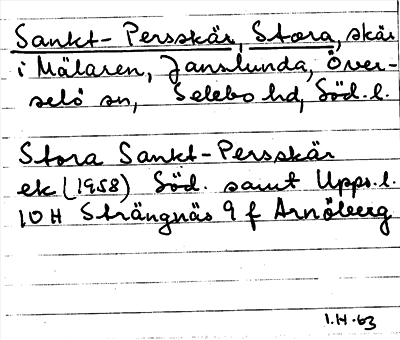 Sankt-Persskär, Stora, skär
i Mälaren, Janslunda, Över-
selö sn, Selebo hd, Söd. l.
Stora Sankt-Persskär
ek (1958) Söd. samt Upps. l.
10 H Strängnäs 9 f Arnöberg
1.H.63